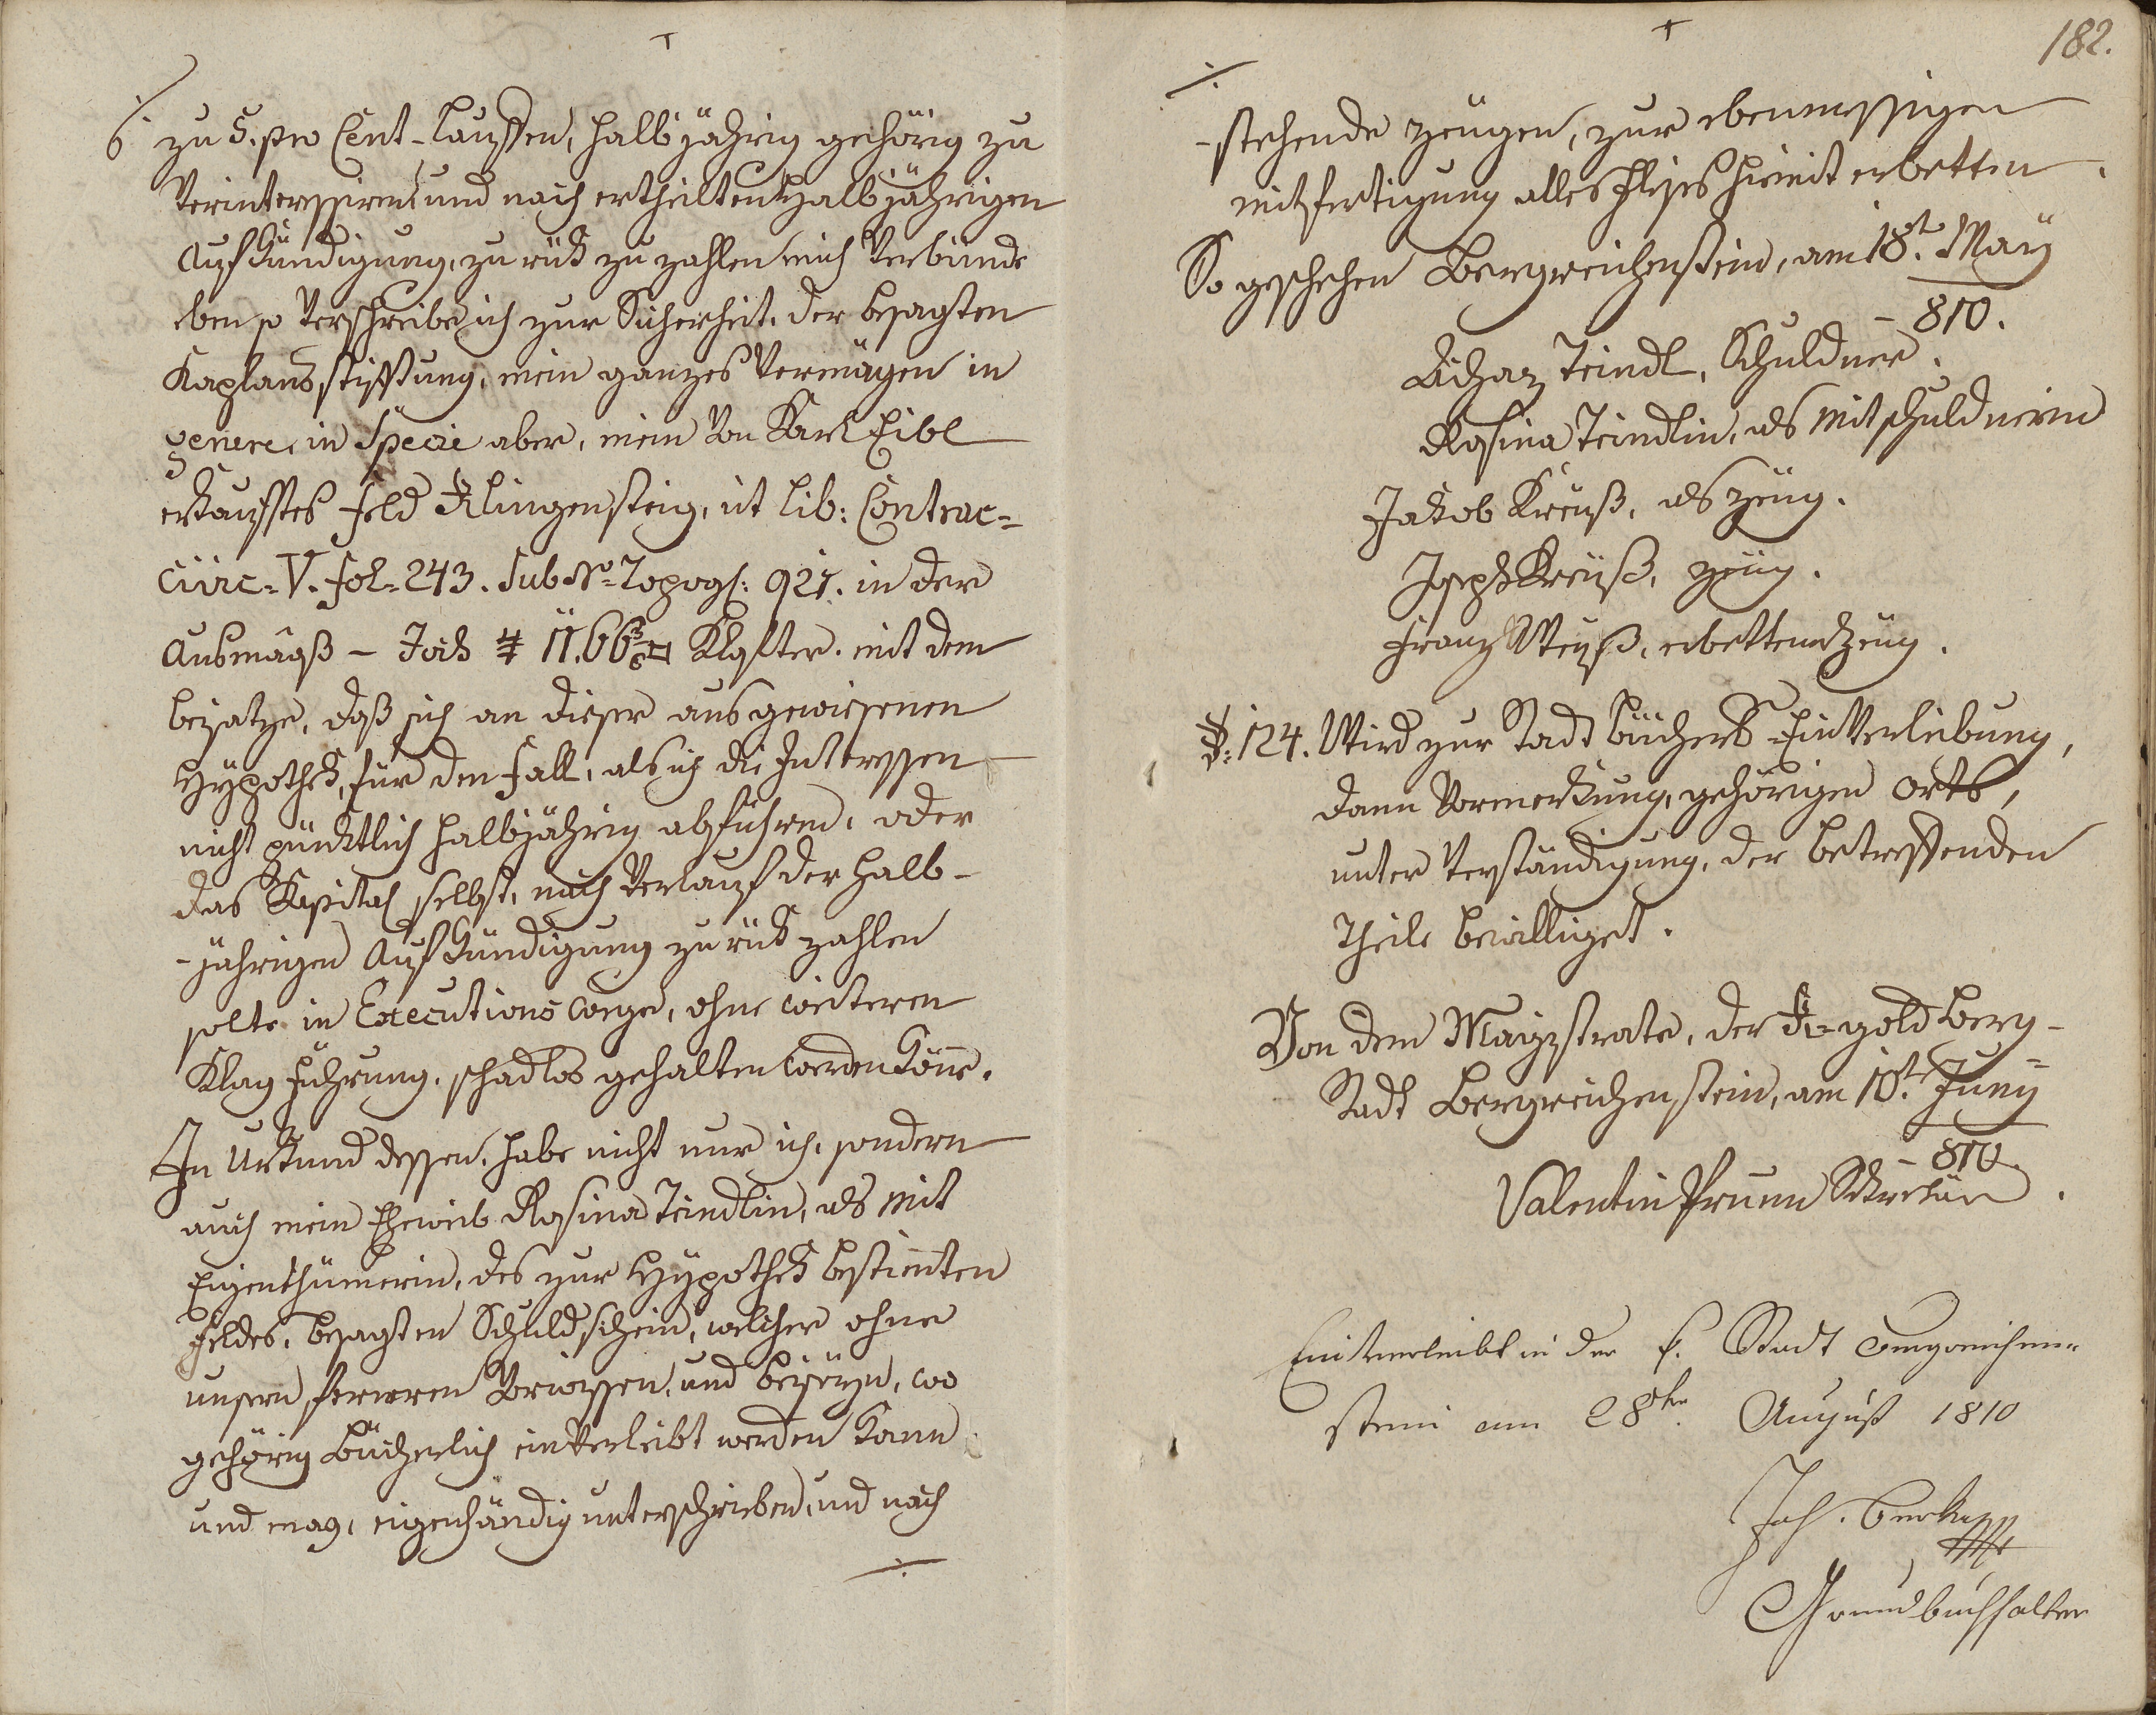 zu 5. pro Cent-lauffen, halbjährig gehörig zu
Verinteressiren, und nach ertheilten halbjährigen
Aufkündigung, zurük zu zahlen mich Verbünde
eben so Verschreibe ich zur Sicherheit, der besagten
Kaplansstifftung, mein ganzes Vermägen in
genere, in Specie aber, mein Von Karl Eibl
erkaufftes Feld Klingensteig, ut lib: Contrac=
Civic= V. fol= 243. Sub No= Topogr: 921. in der
Ausmaaß - Joch 11.66 Klafter. mit dem
beisatze, daß sich an dieser ausgewiesenen
Hypothek, für den Fall, als ich die Interessen
nicht pünktlich halbjährig abführen, oder
das Kapital selbst, nach Verlauf der halb-
-jährigen Aufkündigung zurük zahlen
solte in Executions weege, ohne weiteren
Klag Führung, schadlos gehalten werden könne.
In Urkund dessen, habe nicht nur ich, sondern
auch mein Eheweib Rosina Teindlin, als Mit
Eigenthümerin, des zur Hypothek bestimten
Feldes, besagten Schuldschein, welcher ohne
unsern ferneren Vorwissen, und beiseyn, wo
gehörig Bücherlich einVerleibt werden kann
und mag, eigenhändig unterschrieben, und nach
./.
182.
./.
-stehende Zeugen, zur ebenmessigen
mitfertigung alles Fleises hiemit erbetten.
So geschehen Bergreichenstein, am 18t. Maÿ
- 810.
Achaz Teindl, Schuldner.
Rosina Teindlin, als Mitschuldnerin
Jakob Kreuß, als Zeug.
Joseph Kreuß, Zeug.
Franz Weyß, erbettener Zeug.
124. Wird zur Stadt Büchers-EinVerleibung,
dann Vormerkung, gehörigen Orts,
unter Verständigung, der betreffenden
Theile bewilliget.
Von dem Magistrate, der K= gold Berg-
Stadt Bergreichenstein, am 10t. Junÿ
- 810.
Valentin Prunn Sekretär.
Einverleibt in der k. Stadt Bergreichen=
stein am 28ten August 1810
Joh.
Grundbuchhalter